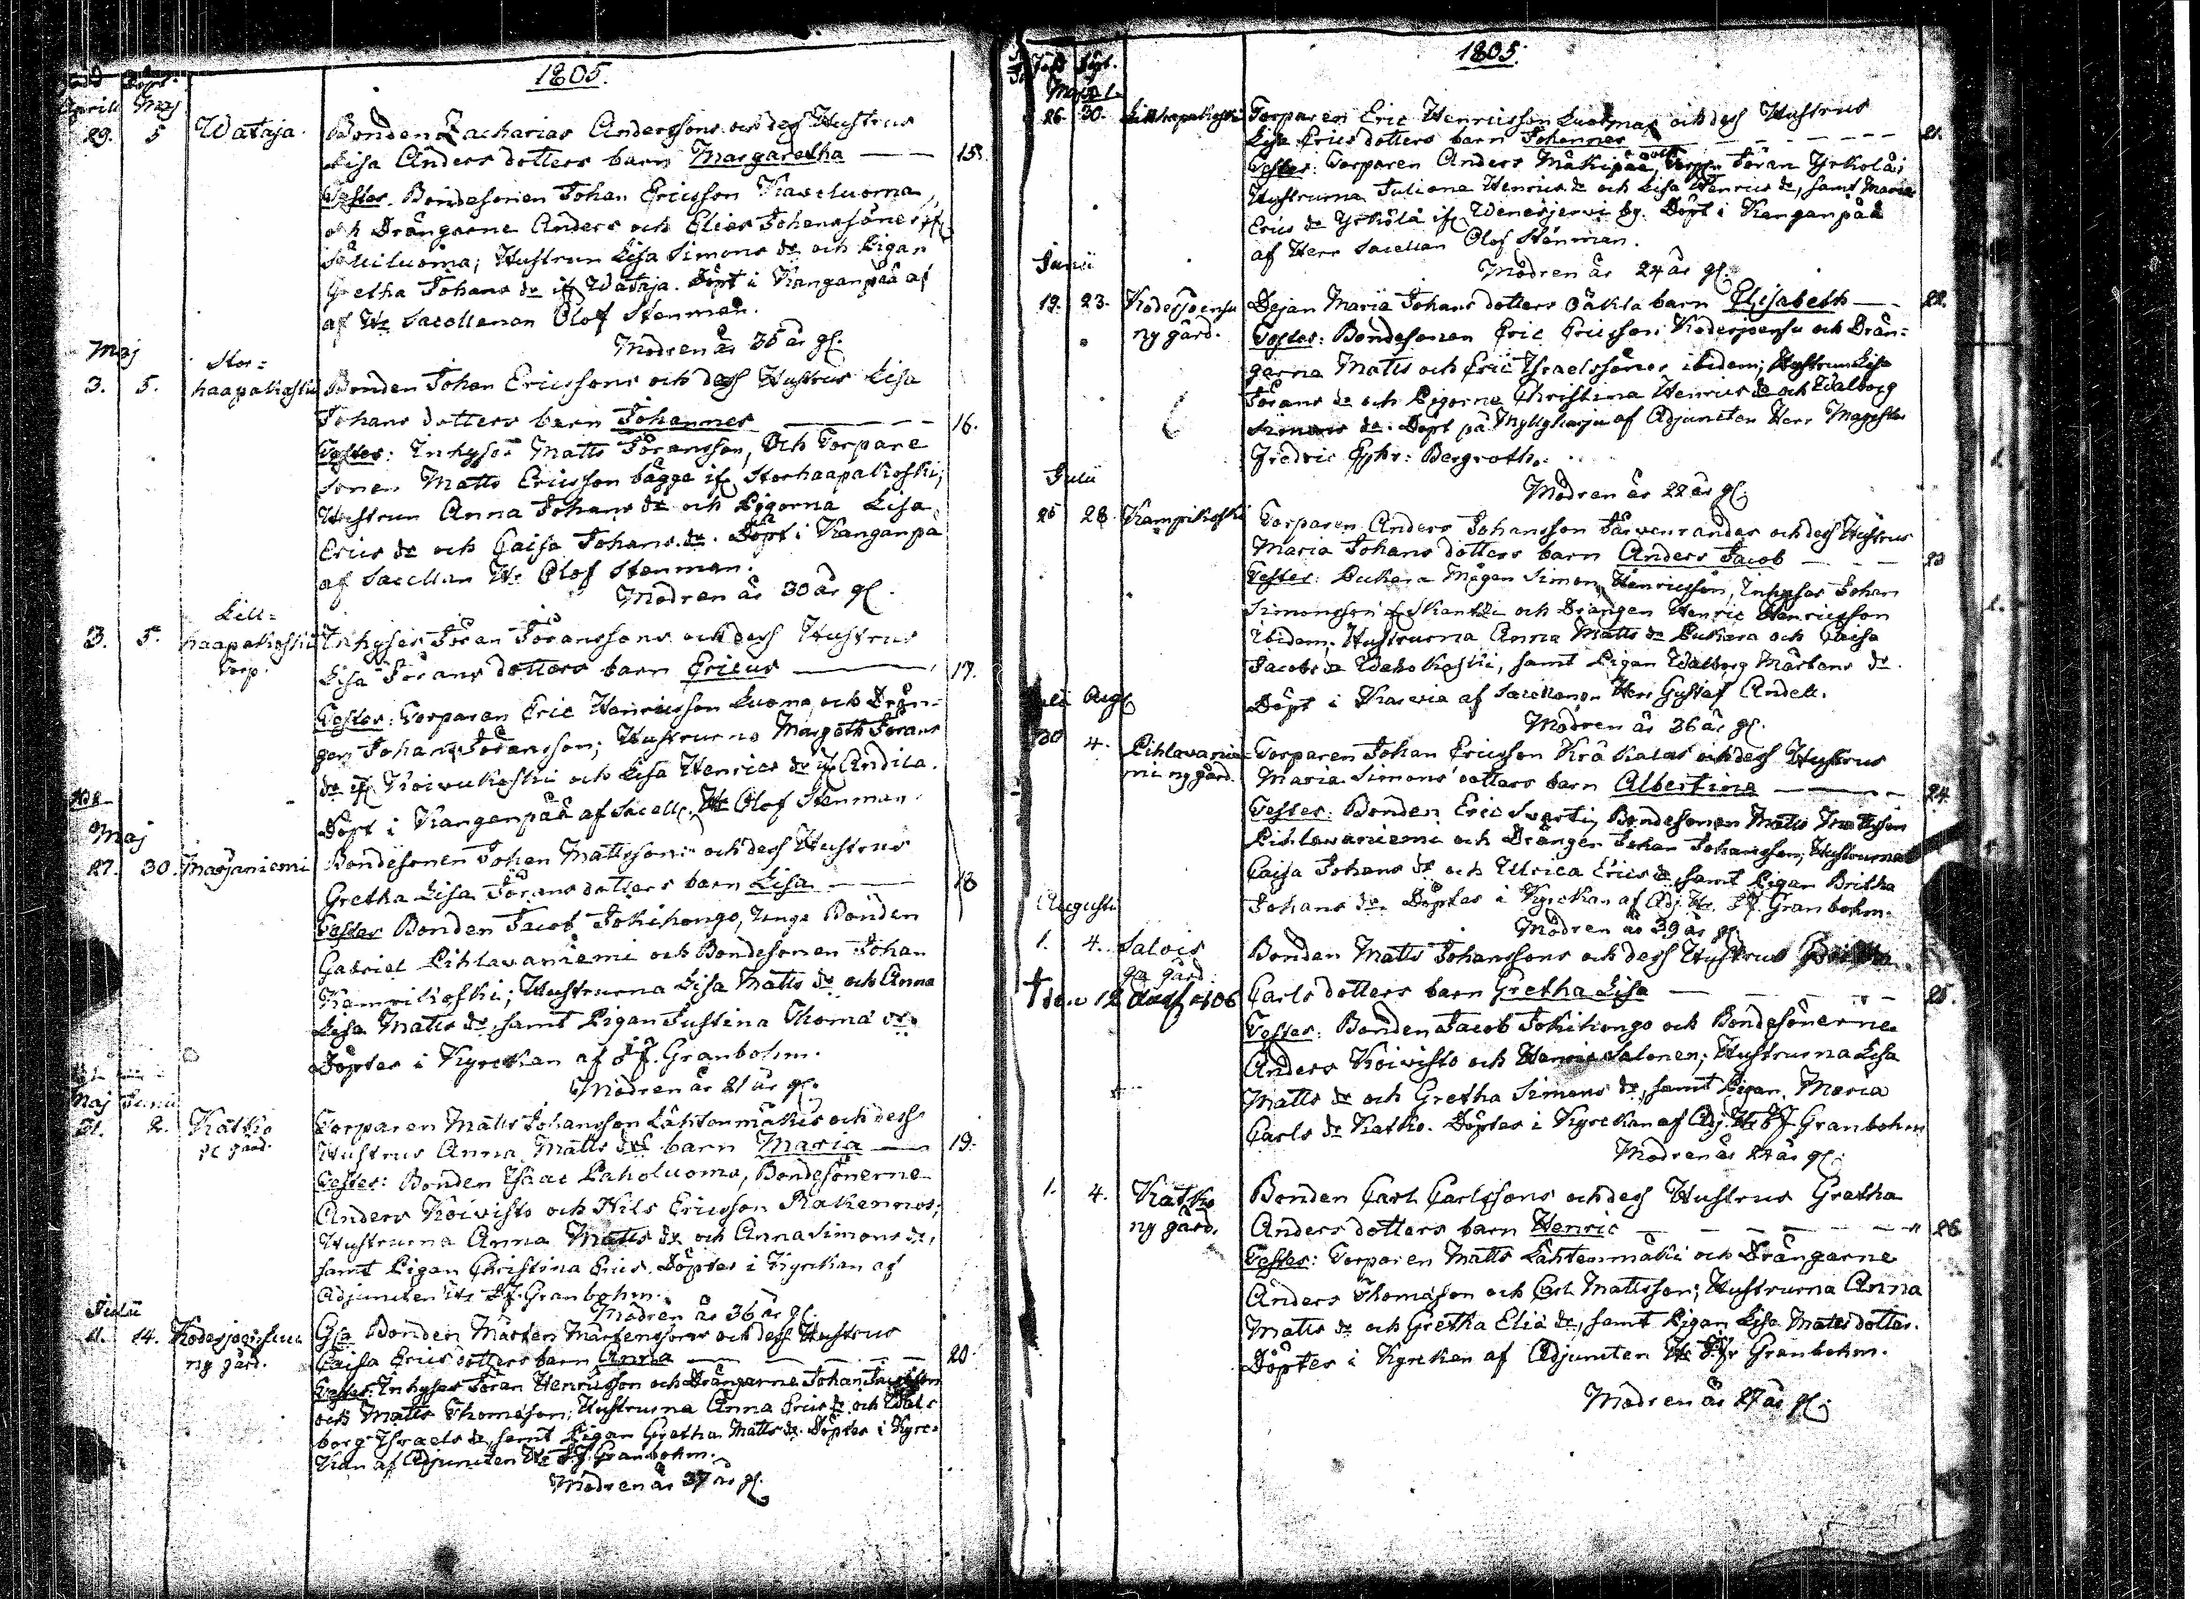 1805.
Född Döpt.
Aprill Maj
29. 5 Wataja. Bonden Zacharias Anderssons och dess Hustrus
Lisa Anders dotters barn Margaretha 15.
Testes. Bondesonen Johan Ericsson Kaveluoma,
och Drängarne Anders och Elias Johanssöner
Hustrun Lisa Simons dr och Pigan
Gretha Johans dr if Wataja. Döpt i Kanganpää af
af Hr Sacellanen Olof Stenman.
Modren är 35 år gl.
Maj
Stor=
3. 5. haapakoski Bonden Johan Ericssons och dess Hustrus Lisa
Johans dotters barn Johannes 16.
Testes: Inhyses Matts Göransson, Och Torpare
sonen Matts Ericsson bägge if Storhaapakoski;
Hustrun Anna Johans dr och Pigorna Lisa
Erics dr och Caisa Johans dr. Döpt i Kanganpä
af Sacellan Hr Olof Stenman.
Modren är 30 år gl.
Lill=
3. 5. haapakoski Inhyses Jöran Jöranssons och dess Hustrus
Torp. Lisa Jörans dotters barn Ericus 17.
Testes: Torparen Eric Henricsson Luoma och Drän-
gen Johan Jöransson; Hustrurna Margeth Jörans
dr if Koivukoski och Lisa Henrics dr if Andila.
Döpt i Kangenpää af Sacell. Hr Olof Stenman
Maj
27. 30. Marjaniemi Bondesonen Johan Mattssons och dess Hustrus
Gretha Lisa Jörans dotters barn Lisa 18
Testes Bonden Jacob Jokihongo, Unge Bonden
Gabriel Pihlavaniemi och Bondesonen Johan
Kamrikoski; Hustrurna Lisa Matts dr och Anna
Lisa Matts dr, samt Pigan Justina Thoma dr.
Döptes i Kyrckan af J.J. Granbohm.
Modren är 21 år gl.
Maj Junii
31. 2. Kätkö Torparen Matts Johansson Lähtenmäkis och dess
gl gård. Hustrus Anna Matts drs barn Maria 19.
Testes: Bonden Isaac Paholuoma, Bondesönerne
Anders Koivisto och Nils Ericsson Rakennos;
Hustrurna Anna Matts dr och Anna Simons dr,
samt Pigan Christina Erics. Döptes i Kyrckan af
Adjuncten Hr J.J. Granbohm.
Modren är 36 år gl.
Julii
11. 14. Kodesjoensuu Gla Bonden Mårten Mårtenssons och dess Hustrus
ny gård. Caisa Erics dotters barn Anna 20.
Testes: Inhyses Jöran Henricsson och Drängarne Johan
och Matts Thomasson; Hustrurna Anna Erics dr och Wal-
borg Israels dr, samt Pigan Gretha Matts dr. Döptes i Kyrc-
kan af Adjuncten Hr J.J. Granbohm.
Modren är 37 år gl.
1805.
Född Döpt.
Maji
26. 30. Lillhapakoski Torparen Eric Henricsson Luomas och dess Hustrus
Lisa Erics dotters barn Johannes 21.
Testes: Torparen Anders Mäkipää, Jöran Yrkölä;
Hustrurna Juliana Henrics dr och Lisa Henrics dr, samt Maria
Erics dr Yrkölä if Wenesjervi by. Döpt i Kanganpää
af Herr Sacellan Olof Stenman.
Modren är 24 år gl.
Junii
19. 23. Kodesjoensu Pejan Maria Johans dotters oäkta barn Elisabeth 22.
ny gård. Testes: Bondesonen Eric Ericsson Kodesjoensu och Drän-
garna Matts och Eric Israelssöner ibidem; Hustrun Lisa
Jörans dr och Pigorne Christina Henrics dr och Walborg
Simons dr. Döpt på Myllyharju af Adjuncten Herr Magister
Fredric Ephr: Bergroth.
Modren är 22 år gl.
Julii
25 28. Kamrikoski Torparen Anders Johansson Järvenrandas och dess Hustrus
Maria Johans dotters barn Anders Jacob 23
Testes: Pukara Mågen Simon Henricsson, Inhyses Johan
Simonsson if Skantzi och Drängen Henric Henricsson
ibidem; Hustrurna Anna Matts dr Pukara och Caisa
Jacobs dr Wahokoski, samt Pigan Walborg Mårtens dr.
Döpt i Karvia af Sacellanen Herr Gustaf Andell.
Modren är 36 år gl.
Julii Aug
30 4. Pihlavanie- Torparen Johan Ericsson Kräkalas och dess Hustrus
mi ny gård. Maria Simons dotters barn Albertina 24.
Testes: Bonden Eric Svarti, Bondesonen Matts Mattsson
Pihlavaniemi och Drängen Johan Johansson; Hustrurna
Caisa Johans dr och Ulrica Erics dr samt Pigan Britha
Johans dr. Döptes i Kyrckan af Adj. Hr. J.J. Granbohm.
Modren är 39 år gl
Augusti
1. 4. Salois Bonden Matts Johanssons och dess Hustrus Britha
gla gård
† den 12 1806 Carls dotters barn Gretha Lisa 25.
Testes: Bonden Jacob Jokihongo och Bondesönerne
Anders Koivisto och Henric Salonen; Hustrurna Lisa
Matts dr och Gretha Simons dr, samt Pigan Maria
Carls dr Katko. Döptes i Kyrckan af Adj. Hr J.J. Granbohm
Modren är 24 år gl.
1. 4. Katko Bonden Carl Carlssons och dess Hustrus Gretha
ny gård. Anders dotters barn Henric 26
Testes: Torparen Matts Lähtenmäki och Drängarne
Anders Thomasson och Carl Mattsson; Hustrurna Anna
Matts dr och Gretha Elia dr, samt Pigan Lisa Matts dotter.
Döptes i Kyrckan af Adjuncten Hr J.J. Granbohm.
Modren är 27 år gl.